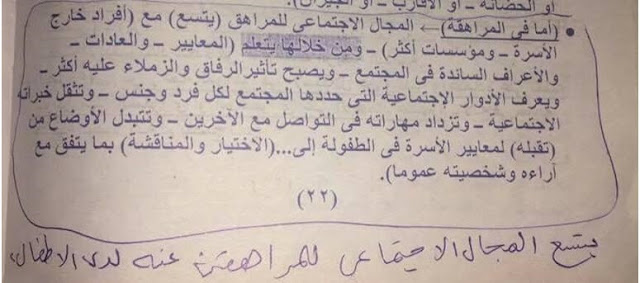 او الحضانة ـ او الأقارب ـ او الجيران).
• (أما فى المراهقة) ← المجال الاجتماعى للمراهق (يتسع) مع (أفراد خارج
الأسرة ـ ومؤسسات أكثر) ـ ومن خلالها يتعلم (المعايير ـ والعادات ـ
والأعراف السائدة فى المجتمع ـ ويصبح تأثير الرفاق والزملاء عليه أكثر ـ
ويعرف الأدوار الإجتماعية التى حددها المجتمع لكل فرد وجنس ـ وتثقل خبراته
الاجتماعية ـ وتزداد مهاراته فى التواصل مع الأخرين ـ وتتبدل الأوضاع من
(تقبله) لمعايير الأسرة فى الطفولة إلى...(الاختيار والمناقشة) بما يتفق مع
آراءه وشخصيته عموما).
(٢٢)
يتسع المجال الاجتماعى للمراهقين عنه لدى الاطفال،